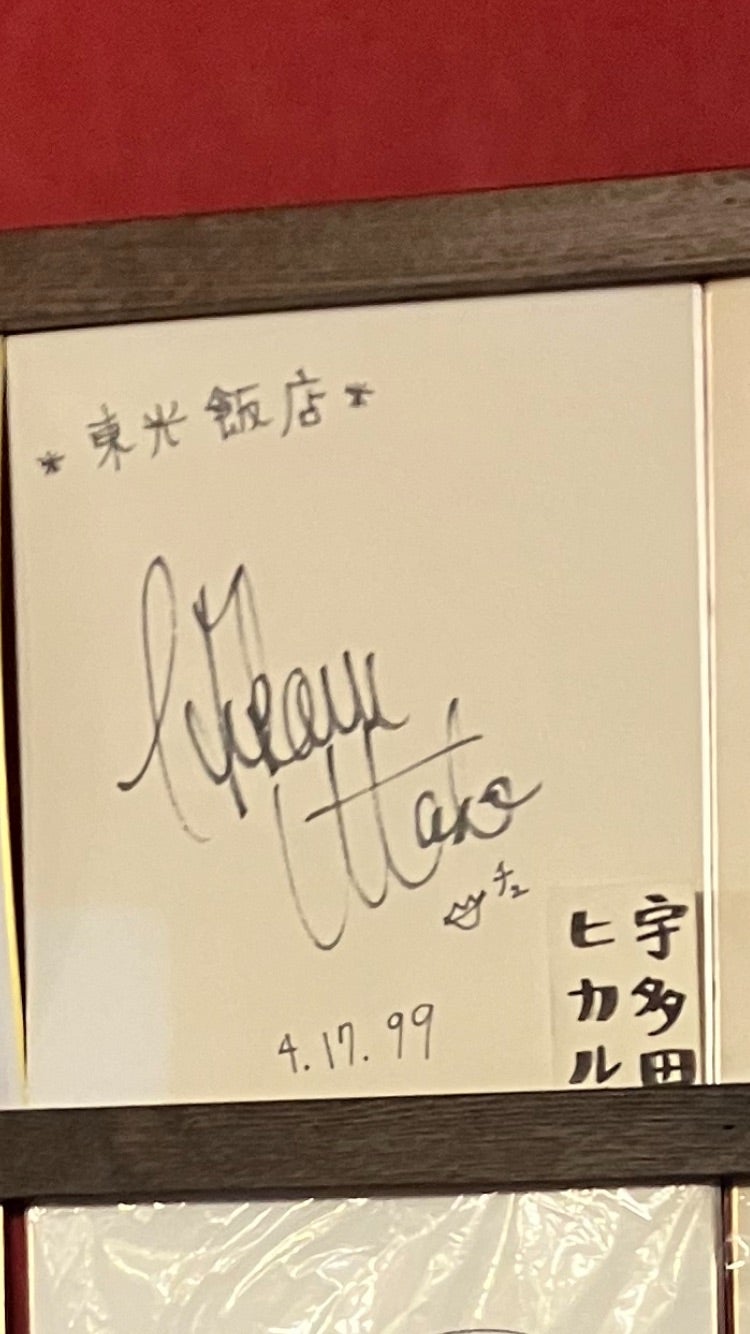 * 東光飯店 *
Hikaru
Utada
チュ
4.17.99
宇多田
ヒカル